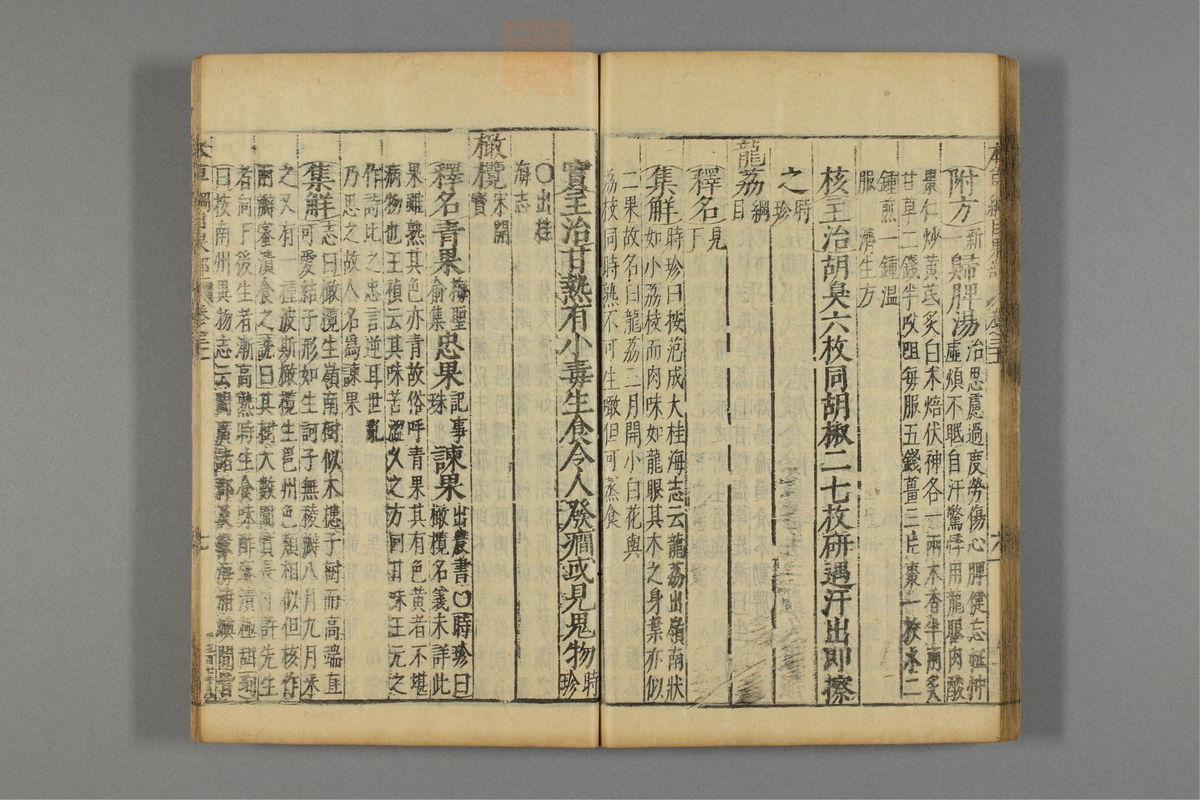 附方新一歸脾湯治思慮過度勞傷心脾健忘怔忡
虛煩不眠自汗驚悸用龍眼肉酸
棗仁炒黃芪炙白术焙伏神各一兩木香半兩炙
甘草二錢半㕮咀每服五錢薑三片棗一枚水二
鍾煎一鍾溫
服 濟生方
核主治胡臭六枚同胡椒二七枚研遇汗出即擦
之時珍
龍荔綱目
釋名見下
集解時珍曰按范成大桂海志云龍荔出嶺南狀
如小荔枝而肉味如龍眼其木之身葉亦似
二果故名曰龍荔三月開小白花與
荔枝同時熟不可生噉但可蒸食
實主治甘熱有小毒生食令人發癇或見鬼物時珍
○出桂
海志
橄欖宋開寶
釋名青果梅聖俞集忠果記事珠諫果出農書○時珍曰
橄欖名義未詳此
果雖熟其色亦青故俗呼青果其有色黃者不堪
病物也王禎云其味苦澀久之方回甘味王元之
作詩比之忠言逆耳世亂
乃思之故人名爲諫果
集解志曰橄欖生嶺南樹似木槵子樹而高端直
可愛結子形如生訶子無稜瓣八月九月采
之又有一種波斯橄欖生邕州色類相似但核作
兩瓣蜜漬食之詵曰其樹大數圍實長寸許先生
者向下後生者漸高熟時生食味酢蜜漬極甜珣
曰按南州異物志云閩廣諸郡及緣海浦嶼間皆